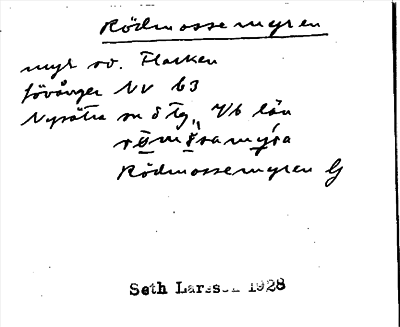 Rödmossemyren
myr sv. Flarken
Lövånger NV b3
Nysätra sn d Tg Vb län
Rödmossemyren G
Seth Larsson 1928